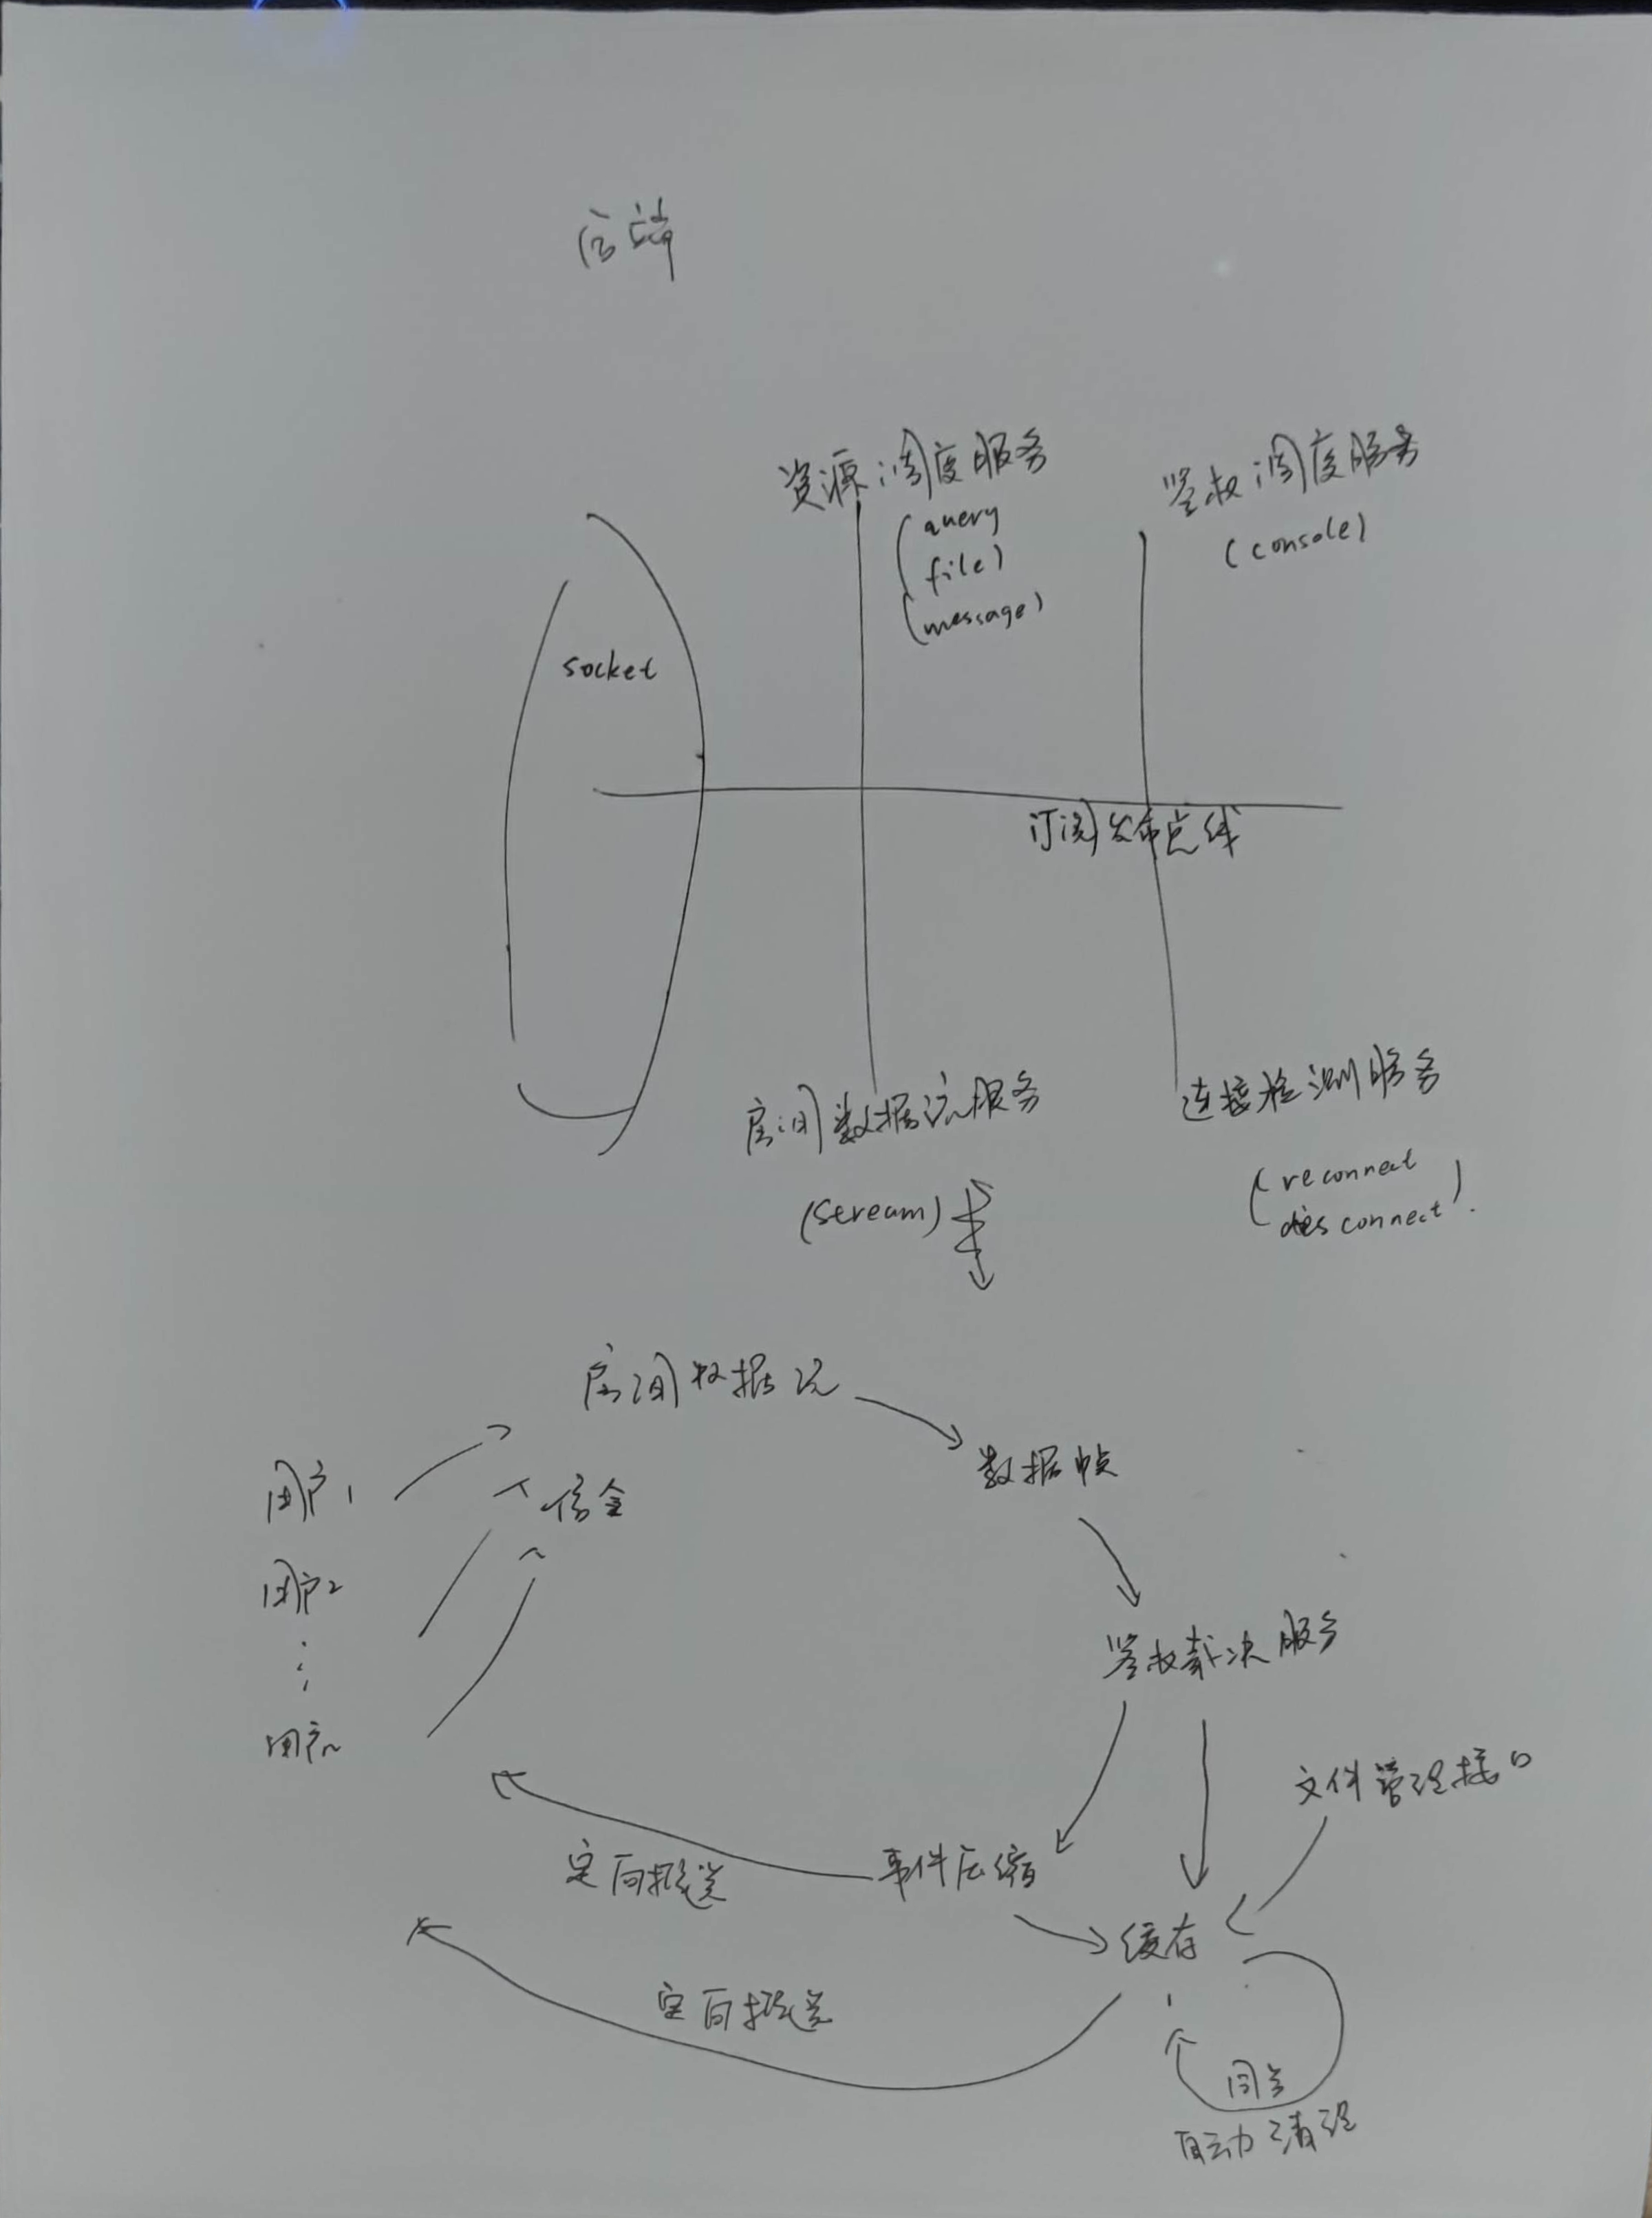 后端
资源调度服务
(query
file)
(message)
鉴权调度服务
(console)
socket
订阅发布总线
房间数据流服务
(Stream)
连接检测服务
(reconnect
disconnect).
房间数据流
数据帧
用户1
用户2
用户n
鉴权裁决服务
文件管理接口
事件压缩
定向推送
缓存
定向推送
自动清理